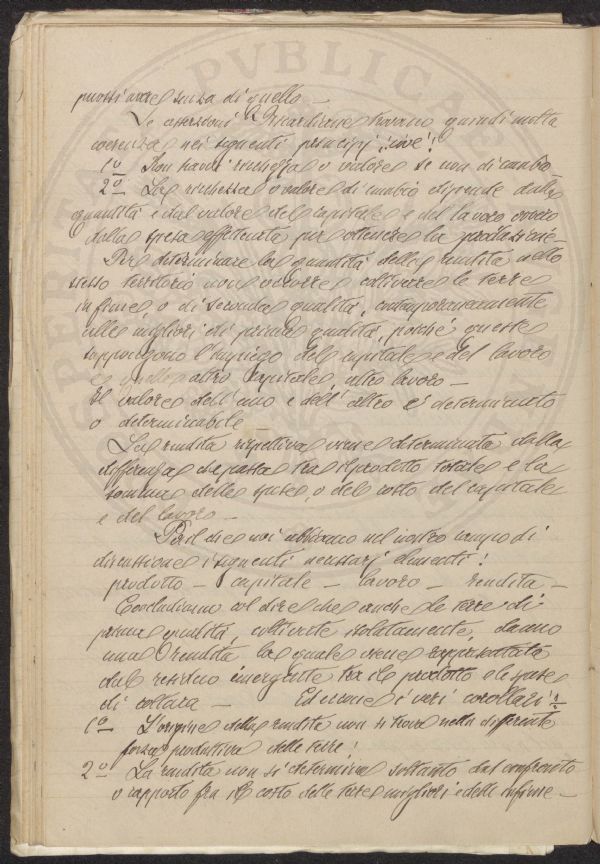 senza di quello —
Le asserzioni Ricardiane trovano quindi molta
coerenza nei seguenti principj, cioè!
1º Non havvi ricchezza o valore se non di cambio
2º La ricchezza o valore di cambio dipende dalla
quantità e dal valore del capitale e del lavoro ovvero
dalla spesa effettuata per ottenere la produzione —
Per determinare la quantità della rendita nello
stesso territorio non occorre coltivare le terre
infime o di seconda qualità, contemporaneamente
alle migliori di prima qualità, perché queste
suppongono l'impiego del capitale e del lavoro
e quelle altro capitale, altro lavoro —
Il valore dell'uno e dell'altro è determinato
o determinabile —
La rendita rispettiva viene determinata dalla
differenza che passa tra il prodotto totale e la
somma delle spese o del costo del capitale
e del lavoro —
che noi abbiamo nel nostro campo di
discussione i seguenti necessarj elementi!
prodotto — capitale — lavoro — rendita —
Concludiamo col dire che anche le terre di
prima qualità, coltivate isolatamente, danno
una rendita la quale viene rappresentata
dal residuo emergente tra il prodotto e le spese
di coltura — Ed eccone i veri corollari:
1º L'origine della rendita non si trova nella differente
forza produttiva delle terre!
2º La rendita non si determina soltanto dal confronto
o rapporto fra il costo delle terre migliori e delle infime —